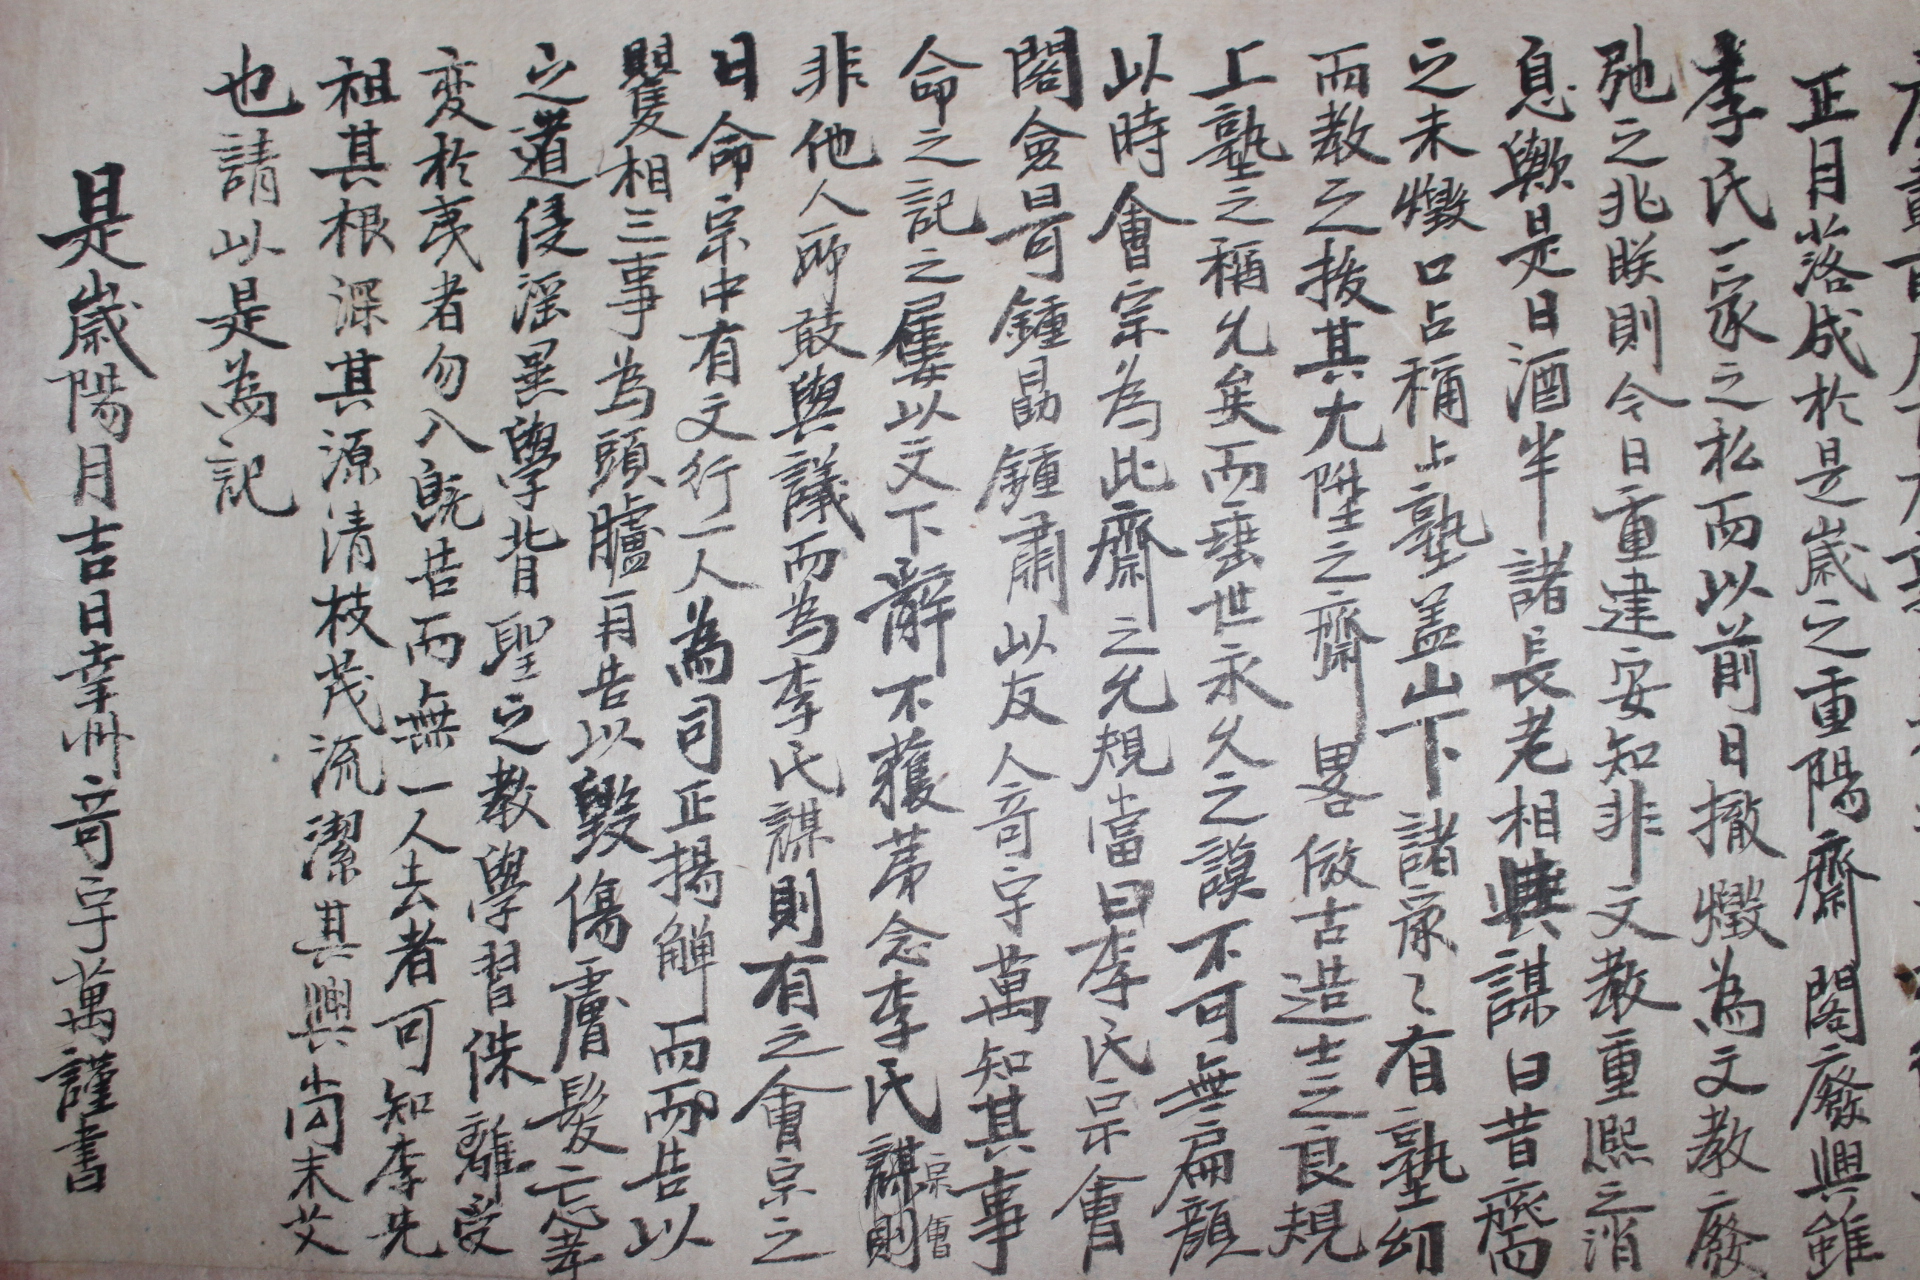 正月落成於是歲之重陽齋閣廢興雖
李氏一家之私而以前日撤燬為文教廢
弛之兆眹則今日重建安知非文教重熙之消
息歟是日酒半諸長老相與謀曰昔齋
之未燬口占稱上塾盖山下諸家〻有塾幼
而教之拔其尤陞之齋畧倣古造士之良規
上塾之稱允矣而垂世永久之謨不可無扁顔
以時會宗為此齋之允規當曰李氏宗會
閣僉曰可鍾勗鍾肅以友人奇宇萬知其事
命之記之屢以文下辭不獲苐念李氏謀則宗會
非他人所敢與議而為李氏謀則有之會宗之
日命宗中有文行一人為司正揚觶而而告以
舋相三事為頭臚一月告以毀傷膚髮忘孝
之道侵滛異學背聖之教學習侏離受
変於夷者勿入旣告而無一人去者可知李先
祖其根深其源清枝茂流潔其興尚未艾
也請以是為記
是歲陽月吉日幸州奇宇萬謹書